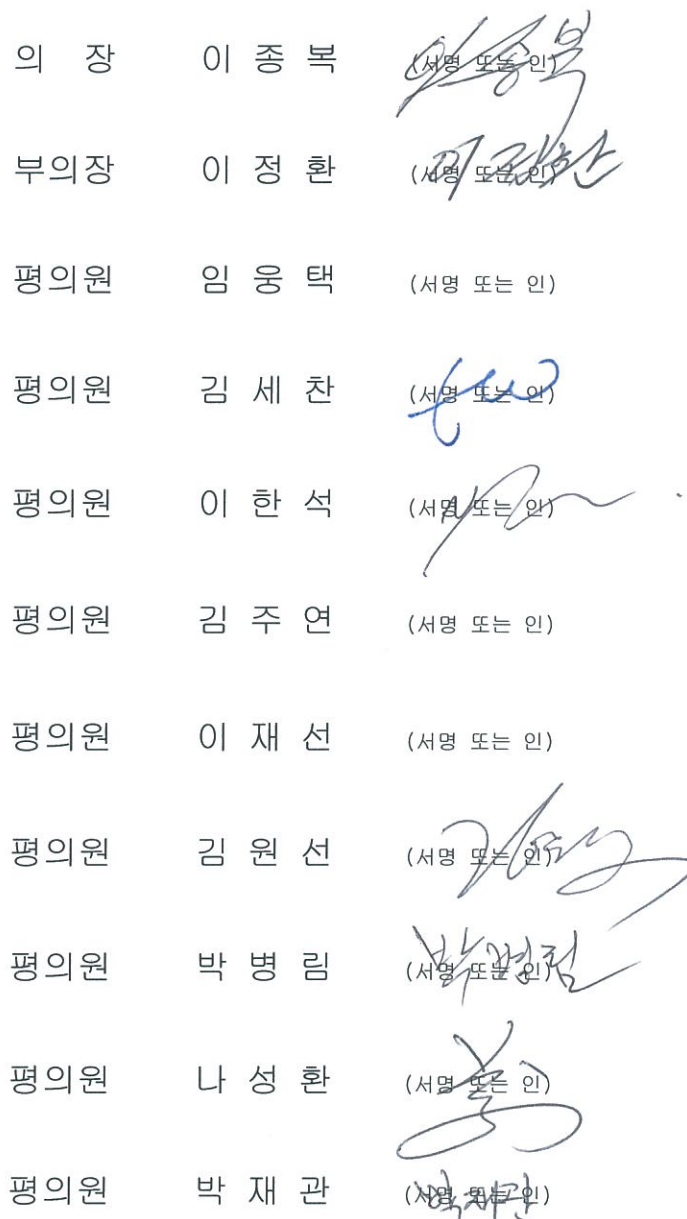 의 장 이 종 복 (서명 또는 인) 이종복
부의장 이 정 환 (서명 또는 인) 이정환
평의원 임 웅 택 (서명 또는 인)
평의원 김 세 찬 (서명 또는 인)
평의원 이 한 석 (서명 또는 인)
평의원 김 주 연 (서명 또는 인)
평의원 이 재 선 (서명 또는 인)
평의원 김 원 선 (서명 또는 인)
평의원 박 병 림 (서명 또는 인) 박병림
평의원 나 성 환 (서명 또는 인)
평의원 박 재 관 (서명 또는 인) 박재관